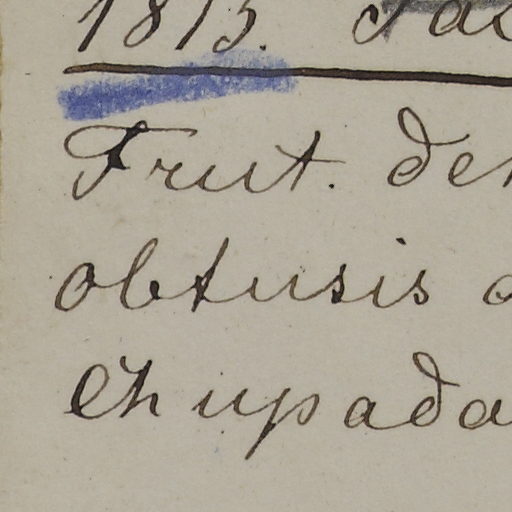 1813.
Frut. de
obtusis
Chupada